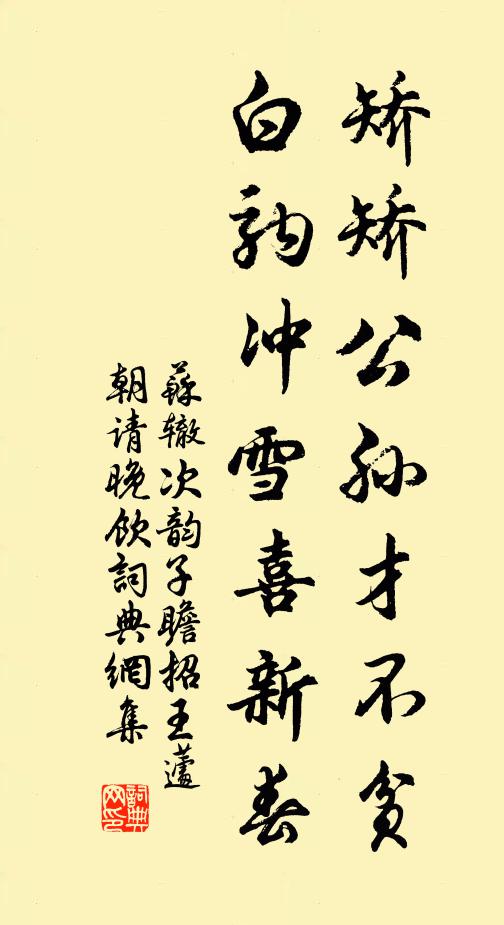 矫矫公孙才不贫
白驹冲雪喜新春
蘇辙次韵子瞻招王蘧
朝请晚饮詞典網集
詞典网印